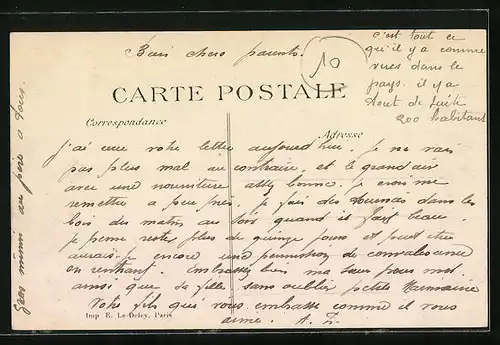 Bien chers parents.
10
c'est tout ce
qu'il y a comme
rues dans le
pays. il y a
tout de suite
200 habitant
CARTE POSTALE
Correspondance
Adresse
j'ai eue votre lettre aujourd'hui. Je ne vais
pas plus mal au contraire, et le grand air
avec une nourriture assez bonne. Je crois me
remettre a peu près. Je fais des tournées dans les
bois des matin au soir quand il fait beau.
je pense rester plus de quinze jours et peut etre
aurais-je encore une permission de convalescence
en rentrant. Embrassez bien ma sœur pour moi
ainsi que sa fille sans oublier petite
Votre fils qui vous embrasse comme il vous
aime. A.
Imp. E. Le Deley, Paris
Gros mimi au père a tous.